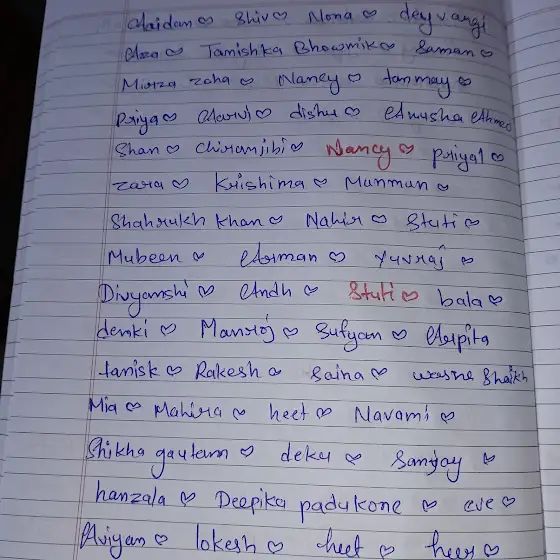 Aaidan ♡ Shiv ♡ Nona ♡ deyvangi
Alza ♡ Tanishka Bhowmik ♡ Saman ♡
Mirza zaha ♡ Nancy ♡ tanmay ♡
Priya ♡ Aarvi ♡ dishu ♡ Anusha Ahmed
Shan ♡ Chiranjibi ♡ Nancy ♡ priyal ♡
zara ♡ Krishima ♡ Munmun ♡
Shahrukh khan ♡ Nahir ♡ Stuti ♡
Mubeen ♡ Arman ♡ Yuvraj ♡
Divyanshi ♡ Andh ♡ Stuti ♡ bala ♡
denki ♡ Manroj ♡ Sufyan ♡ Arpita
tanisk ♡ Rakesh ♡ Saina ♡ Shaikh
Mia ♡ Mahira ♡ heet ♡ Navami ♡
Shikha gautam ♡ deku ♡ Sanjay ♡
hanzala ♡ Deepika padukone ♡ eve ♡
Aviyan ♡ lokesh ♡ heet ♡ heer ♡